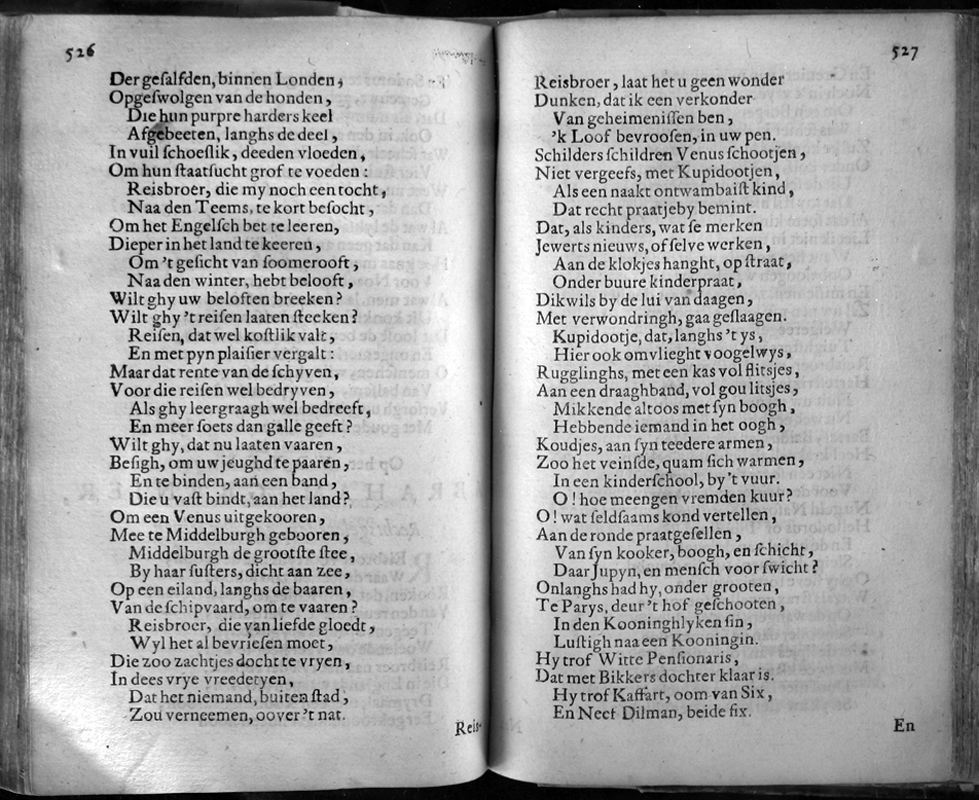 526
Der gesalfden, binnen Londen,
Opgeswolgen van de honden,
Die hun purpre harders keel
Afgebeeten, langhs de deel,
In vuil schoeslik, deeden vloeden,
Om hun staatsucht grof te voeden:
Reisbroer, die my noch een tocht,
Naa den Teems, te kort besocht,
Om het Engelsch bet te leeren,
Dieper in het land te keeren,
Om 't gesicht van soomerooft,
Naa den winter, hebt belooft,
Wilt ghy uw beloften breeken?
Wilt ghy 't reisen laaten steecken?
Reisen, dat wel kostlik valt,
En met pyn plaisier vergalt:
Maar dat rente van de schyven,
Voor die reisen wel bedryven,
Als ghy leergraagh wel bedreeft,
En meer soets dan galle geeft?
Wilt ghy, dat nu laaten vaaren,
Besigh, om uw jeughd te paaren,
En te binden, aan een band,
Die u vast bindt, aan het land?
Om een Venus uitgekooren,
Mee te Middelburgh gebooren,
Middelburgh de grootste stee,
By haar susters, dicht aan zee,
Op een eiland, langhs de baaren,
Van de schipvaard, om te vaaren?
Reisbroer, die van liefde gloedt,
Wyl het al bevriesen moet,
Die zoo zachtjes docht te vryen,
In dees vrye vreedetyen,
Dat het niemand, buiten stad,
Zou verneemen, oover 't nat.
Reis-
527
Reisbroer, laat het u geen wonder
Dunken, dat ik een verkonder
Van geheimenissen ben,
'k Loof bevroosen, in uw pen.
Schilders schildren Venus schootjen,
Niet vergeefs, met Kupidootjen,
Als een naakt ontwambaist kind,
Dat recht praatjeby bemint.
Dat, als kinders, wat se merken
Jewerts nieuws, of selve werken,
Aan de klokjes hanght, op straat,
Onder buure kinderpraat,
Dikwils by de lui van daagen,
Met verwondringh, gaa geslaagen.
Kupidootje, dat, langhs 't ys,
Hier ook omvlieght voogelwys,
Rugglinghs, met een kas vol flitsjes,
Aan een draaghband, vol gou litsjes,
Mikkende altoos met syn boogh,
Hebbende iemand in het oogh,
Koudjes, aan syn teedere armen,
Zoo het veinsde, quam sich warmen,
In een kinderschool, by 't vuur.
O! hoe meengen vremden kuur?
O! wat seldsaams kond vertellen,
Aan de ronde praatgesellen,
Van syn kooker, boogh, en schicht,
Daar Jupyn, en mensch voor swicht?
Onlanghs had hy, onder grooten,
Te Parys, deur 't hof geschooten,
In den Kooninghlyken sin,
Lustigh naa een Kooningin.
Hy trof Witte Pensionaris,
Dat met Bikkers dochter klaar is.
Hy trof Kaffart, oom van Six,
En Neef Dilman, beide fix.
En